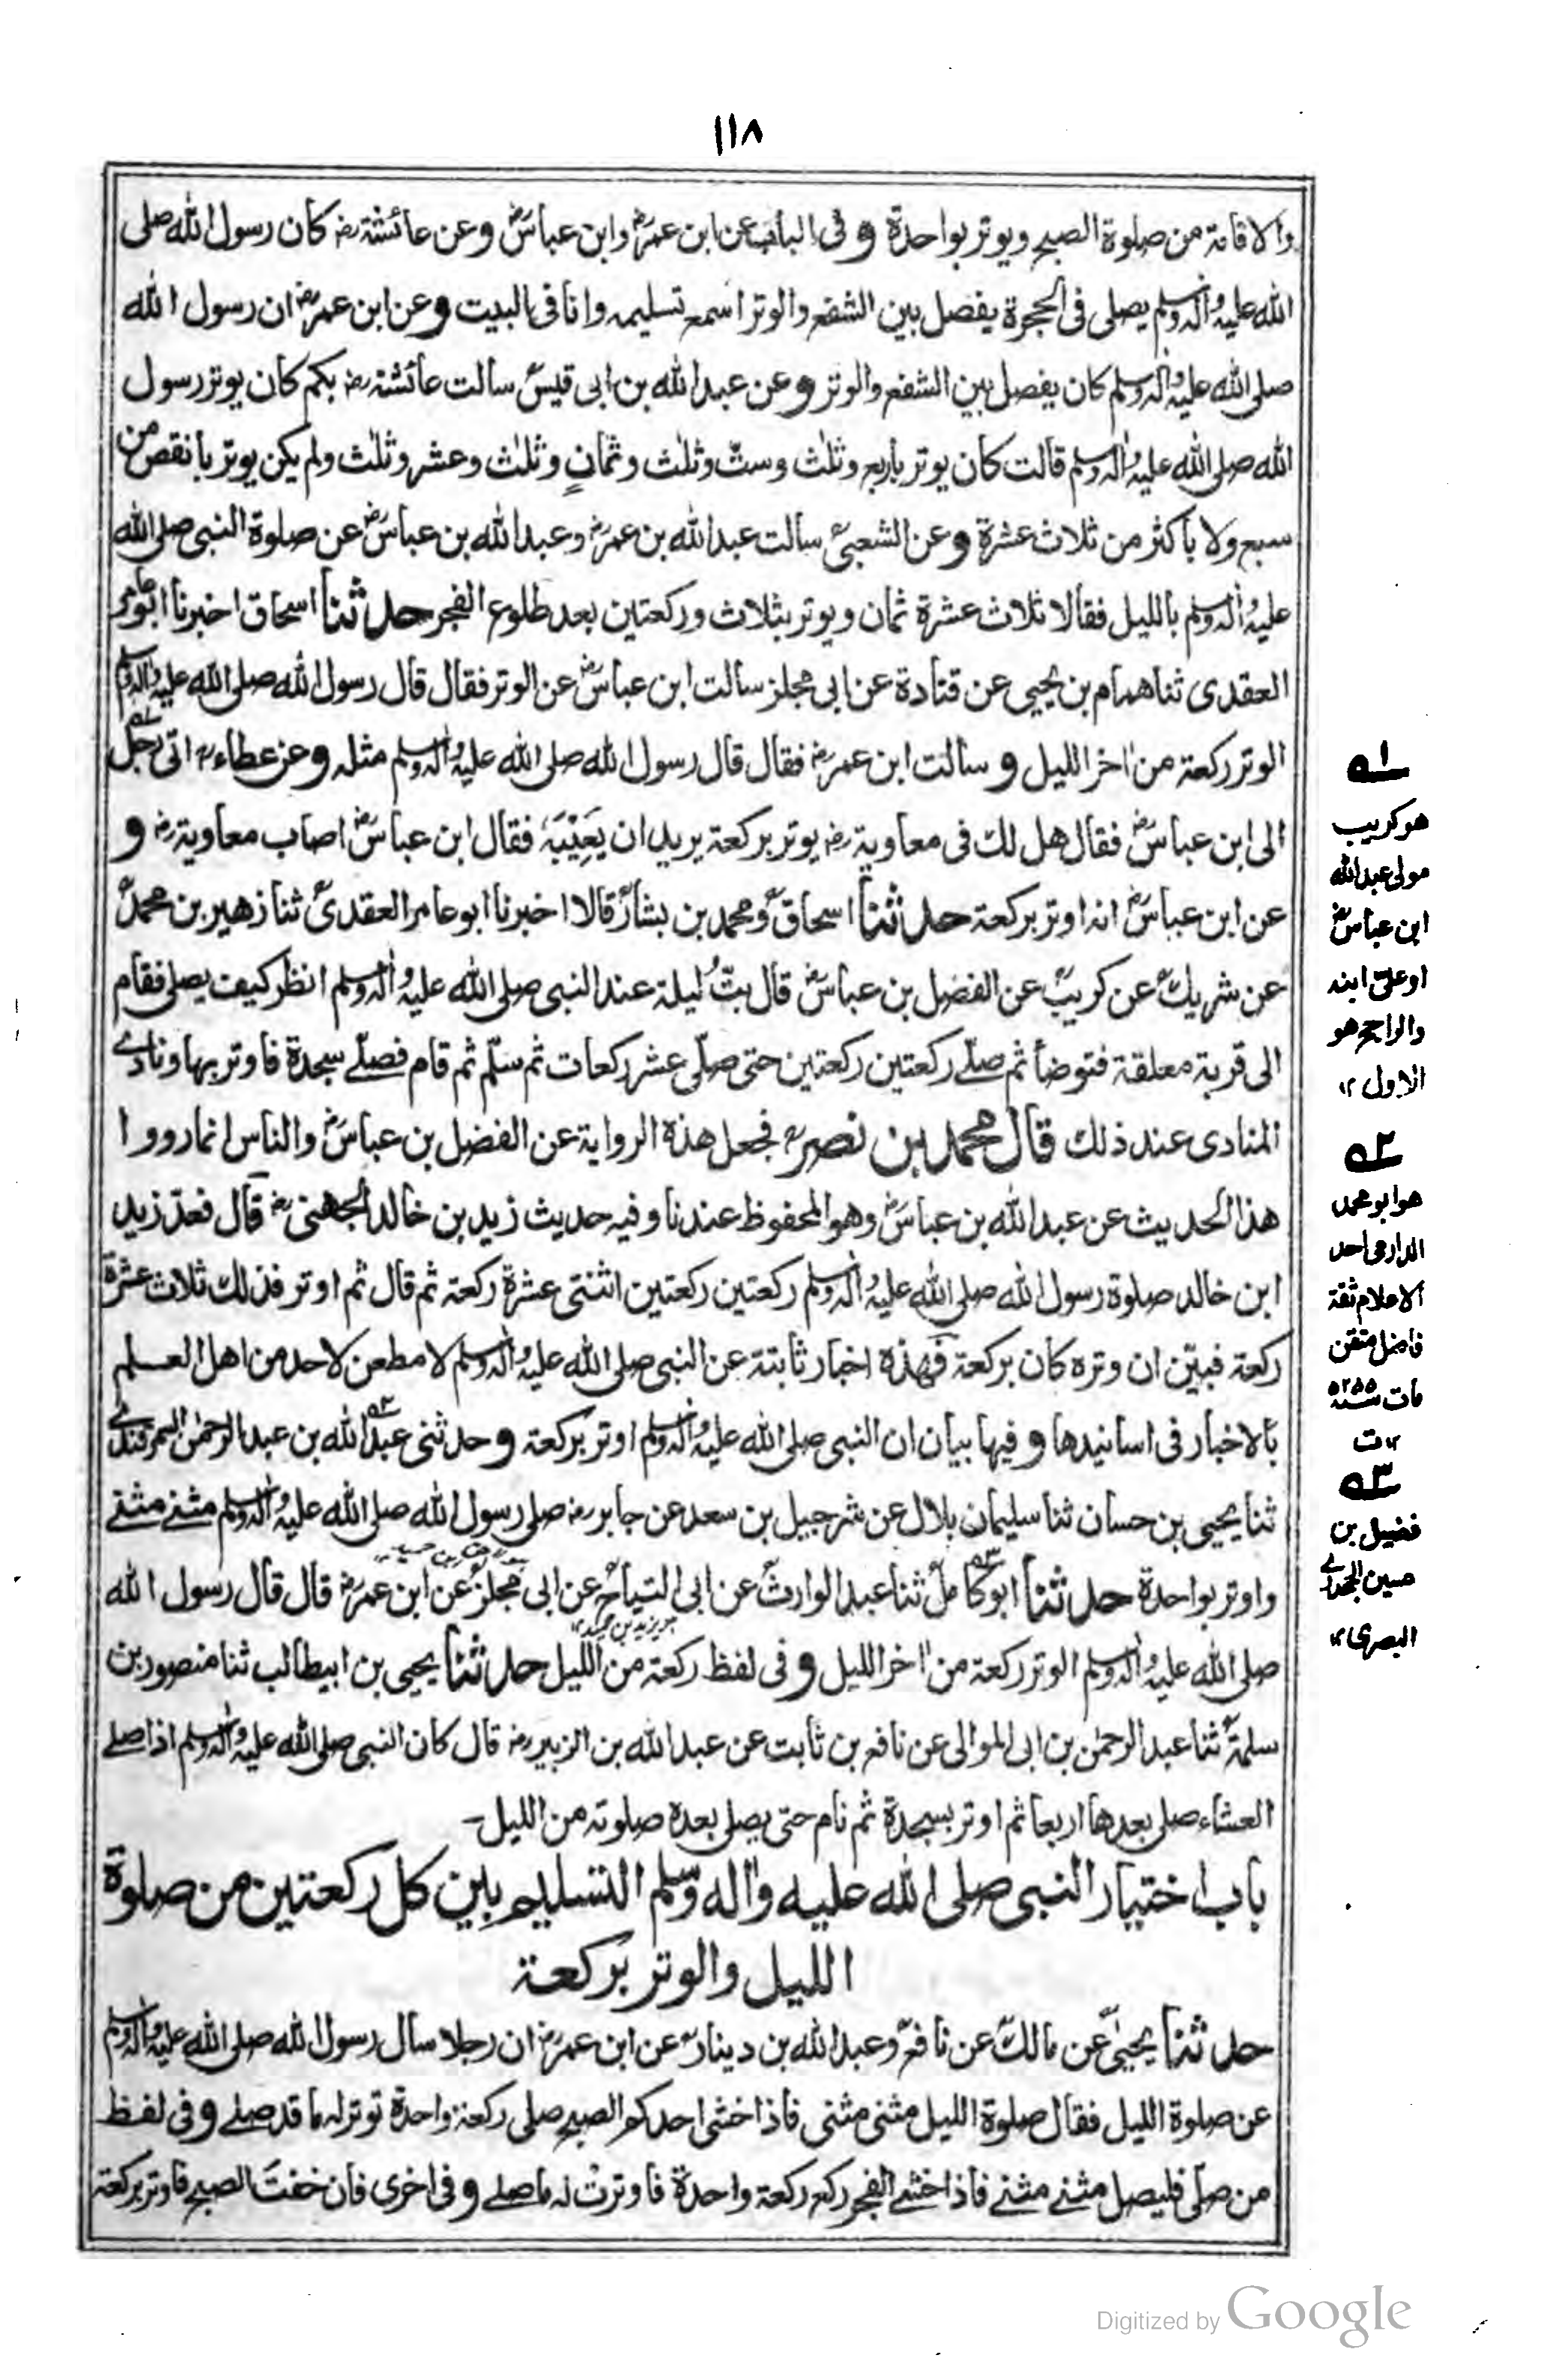 ١١٨
والاقامة من صلوة الصبح ويوتر بواحدة وفى الباب عن ابن عمرؓ وابن عباسؓ وعن عائشةؓ كان رسول الله صلى
الله عليه واٰله وسلم يصلى فى الحجرة يفصل بين الشفع والوتر اسمع تسليمه وانا فى البيت وعن ابن عمرؓ ان رسول الله
صلى الله عليه واٰله وسلم كان يفصل بين الشفع والوتر وعن عبدالله بن ابى قيسؒ سالت عائشةؓ بكم كان يوتر رسول
الله صلى الله عليه واٰله وسلم قالت كان يوتر باربع وثلٰث وستّ وثلٰث وثمانٍ وثلٰث وعشر وثلٰث ولم يكن يوتر بانقص من
سبع ولا باكثر من ثلاث عشرة وعن الشعبىؒ سالت عبدالله بن عمرؓ وعبدالله بن عباسؓ عن صلوة النبى صلى الله
عليه واٰله وسلم بالليل فقالا ثلاث عشرة ثمان ويوتر بثلاث وركعتين بعد طلوع الفجر حدثنا اسحاق اخبرنا ابوعامر
العقدى ثنا همام بن يحيى عن قتادة عن ابى مجلز سالت ابن عباسؓ عن الوتر فقال قال رسول الله صلى الله عليه واٰله وسلم
الوتر ركعة من اٰخر الليل وسالت ابن عمرؓ فقال قال رسول الله صلى الله عليه واٰله وسلم مثله وعن عطاءؒ اتى رجل
الى ابن عباسؓ فقال هل لك فى معاويةؓ يوتر بركعة يريد ان يَعِيْبَهٗ فقال ابن عباسؓ اصاب معاويةؓ و
عن ابن عباسؓ انه اوتر بركعة حدثنا اسحاقؒ ومحمد بن بشارؒ قالا اخبرنا ابوعامر العقدىؒ ثنا زهير بن محمدؒ
عن شريكؒ عن كريبؒ عن الفضل بن عباسؓ قال بتّ ليلة عند النبى صلى الله عليه واٰله وسلم انظر كيف يصلى فقام
الى قربة معلقة فتوضأ ثم صلے ركعتين ركعتين حتى صلّى عشر ركعات ثم سلّم ثم قام فصلّے سجدة فاوتر بها ونادے
المنادى عند ذلك قال محمد بن نصرؒ فجعل هذه الرواية عن الفضل بن عباسؓ والناس انما رووا
هذا الحديث عن عبدالله بن عباسؓ وهو المحفوظ عندنا وفيه حديث زيد بن خالد الجهنىؓ قال فعدّ زيد
ابن خالد صلوة رسول الله صلى الله عليه واٰله وسلم ركعتين ركعتين اثنتى عشرة ركعة ثم قال ثم اوتر فذلك ثلاث عشرة
ركعة فبيّن ان وتره كان بركعة فهذه اخبار ثابتة عن النبى صلى الله عليه واٰله وسلم لا مطعن لاحد من اهل العلم
بالاخبار فى اسانيدها وفيها بيان ان النبى صلى الله عليه واٰله وسلم اوتر بركعة وحدثنى عبدالله بن عبدالرحمٰن السمرقندے
ثنا يحيى بن حسان ثنا سليمان بلال عن شرحبيل بن سعد عن جابرؓ صلى رسول الله صلى الله عليه واٰله وسلم مثنے مثنے
واوتر بواحدة حدثنا ابوكاملؒ ثنا عبدالوارثؒ عن ابى التياحؒ عن ابى مجلزؒ عن ابن عمرؓ قال قال رسول الله
صلى الله عليه واٰله وسلم الوتر ركعة من اٰخر الليل وفى لفظ ركعة من الليل حدثنا يحيى بن ابيطالب ثنا منصور بن
سلمةؒ ثنا عبدالرحمٰن بن ابى الموالى عن نافع بن ثابت عن عبدالله بن الزبيرؓ قال كان النبى صلى الله عليه واٰله وسلم اذا صلے
العشاء صلى بعدها اربعا ثم اوتر بسجدة ثم نام حتى يصلى بعده صلوته من الليل۔
باب اختيار النبى صلى الله عليه واٰله وسلم التسليم بين كل ركعتين من صلوة
الليل والوتر بركعة
حدثنا يحيىٰؒ عن مالكؒ عن نافعؒ وعبدالله بن دينارؒ عن ابن عمرؓ ان رجلا سال رسول الله صلى الله عليه واٰله وسلم
عن صلوة الليل فقال صلوة الليل مثنى مثنى فاذا خشى احدكم الصبح صلى ركعة واحدة توتر له ما قد صلے وفى لفظ
من صلّى فليصل مثنے مثنے فاذا خشے الفجر ركع ركعة واحدة فاوترتْ له ما صلے وفى اخرى فان خفتَ الصبح فاوتر بركعة
۱ہ
هو كريب
مولى عبدالله
ابن عباسؓ
او علىّ ابنه
والراجح هو
الاول ۱۲
۲ہ
هو ابو محمد
الدارمى احد
الاعلام ثقة
فاضل متقن
مات سنة ۲۵۵ھ
۱۲ت
۳ہ
فضيل بن
حسين الجحدرے
البصرى ۱۲
Digitized by Google